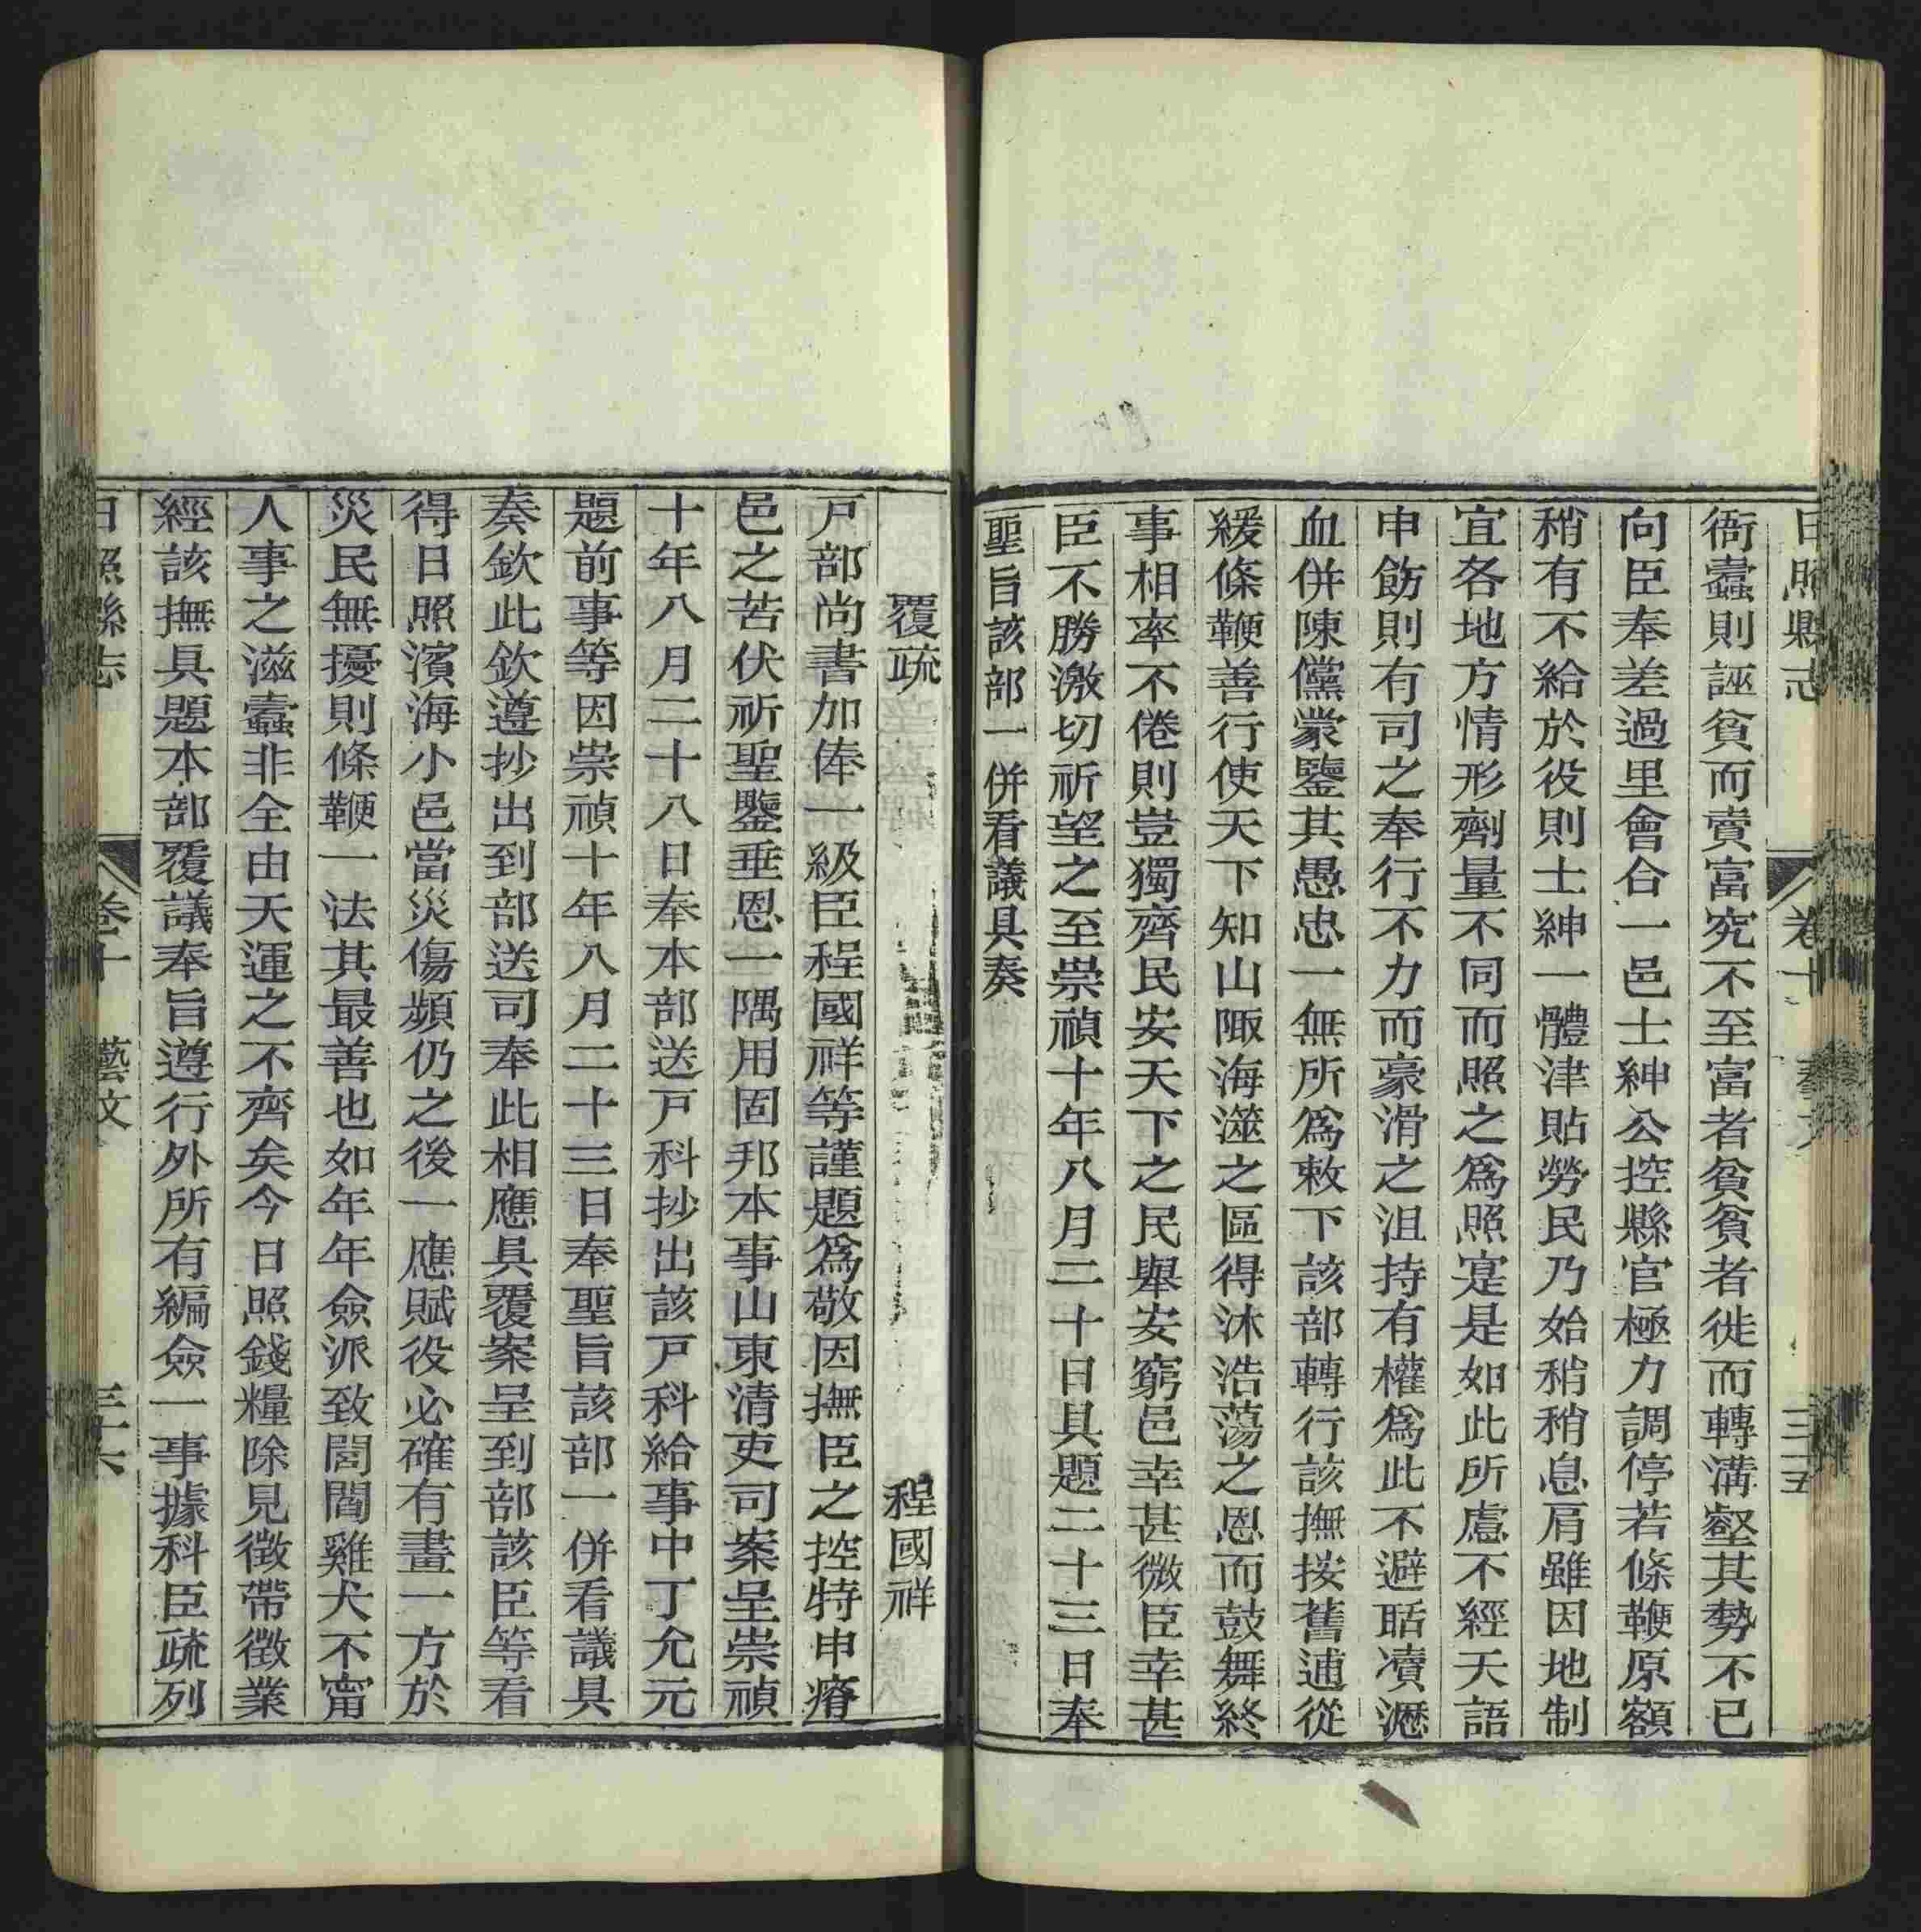 日照縣志 卷十 藝文 三十五
衙蠹則誣貧而賣富究不至富者貧貧者徙而轉溝壑其勢不已
向臣奉差過里會合一邑士紳公控縣官極力調停若條鞭原額
稍有不給於役則士紳一體津貼勞民乃始稍稍息肩雖因地制
宜各地方情形劑量不同而照之爲照寔是如此所慮不經天語
申飭則有司之奉行不力而豪滑之沮持有權爲此不避聒凟瀝
血併陳儻蒙鑒其愚忠一無所爲敕下該部轉行該撫按舊逋從
緩條鞭善行使天下知山陬海澨之區得沐浩蕩之恩而鼓舞終
事相率不倦則豈獨齊民安天下之民舉安窮邑幸甚微臣幸甚
臣不勝激切祈望之至崇禎十年八月二十日具題二十三日奉
聖旨該部一併看議具奏
覆疏 程國祥
戸部尚書加俸一級臣程國祥等謹題爲敬因撫臣之控特申瘠
邑之苦伏祈聖鑒垂恩一隅用固邦本事山東清吏司案呈崇禎
十年八月二十八日奉本部送戸科抄出該戸科給事中丁允元
題前事等因崇禎十年八月二十三日奉聖旨該部一併看議具
奏欽此欽遵抄出到部送司奉此相應具覆案呈到部該臣等看
得日照濱海小邑當災傷頻仍之後一應賦役必確有畫一方於
災民無擾則條鞭一法其最善也如年年僉派致閭閻雞犬不甯
人事之滋蠹非全由天運之不齊矣今日照錢糧除見徴帶徴業
經該撫具題本部覆議奉旨遵行外所有編僉一事據科臣疏列
日照縣志 卷十 藝文 三十六